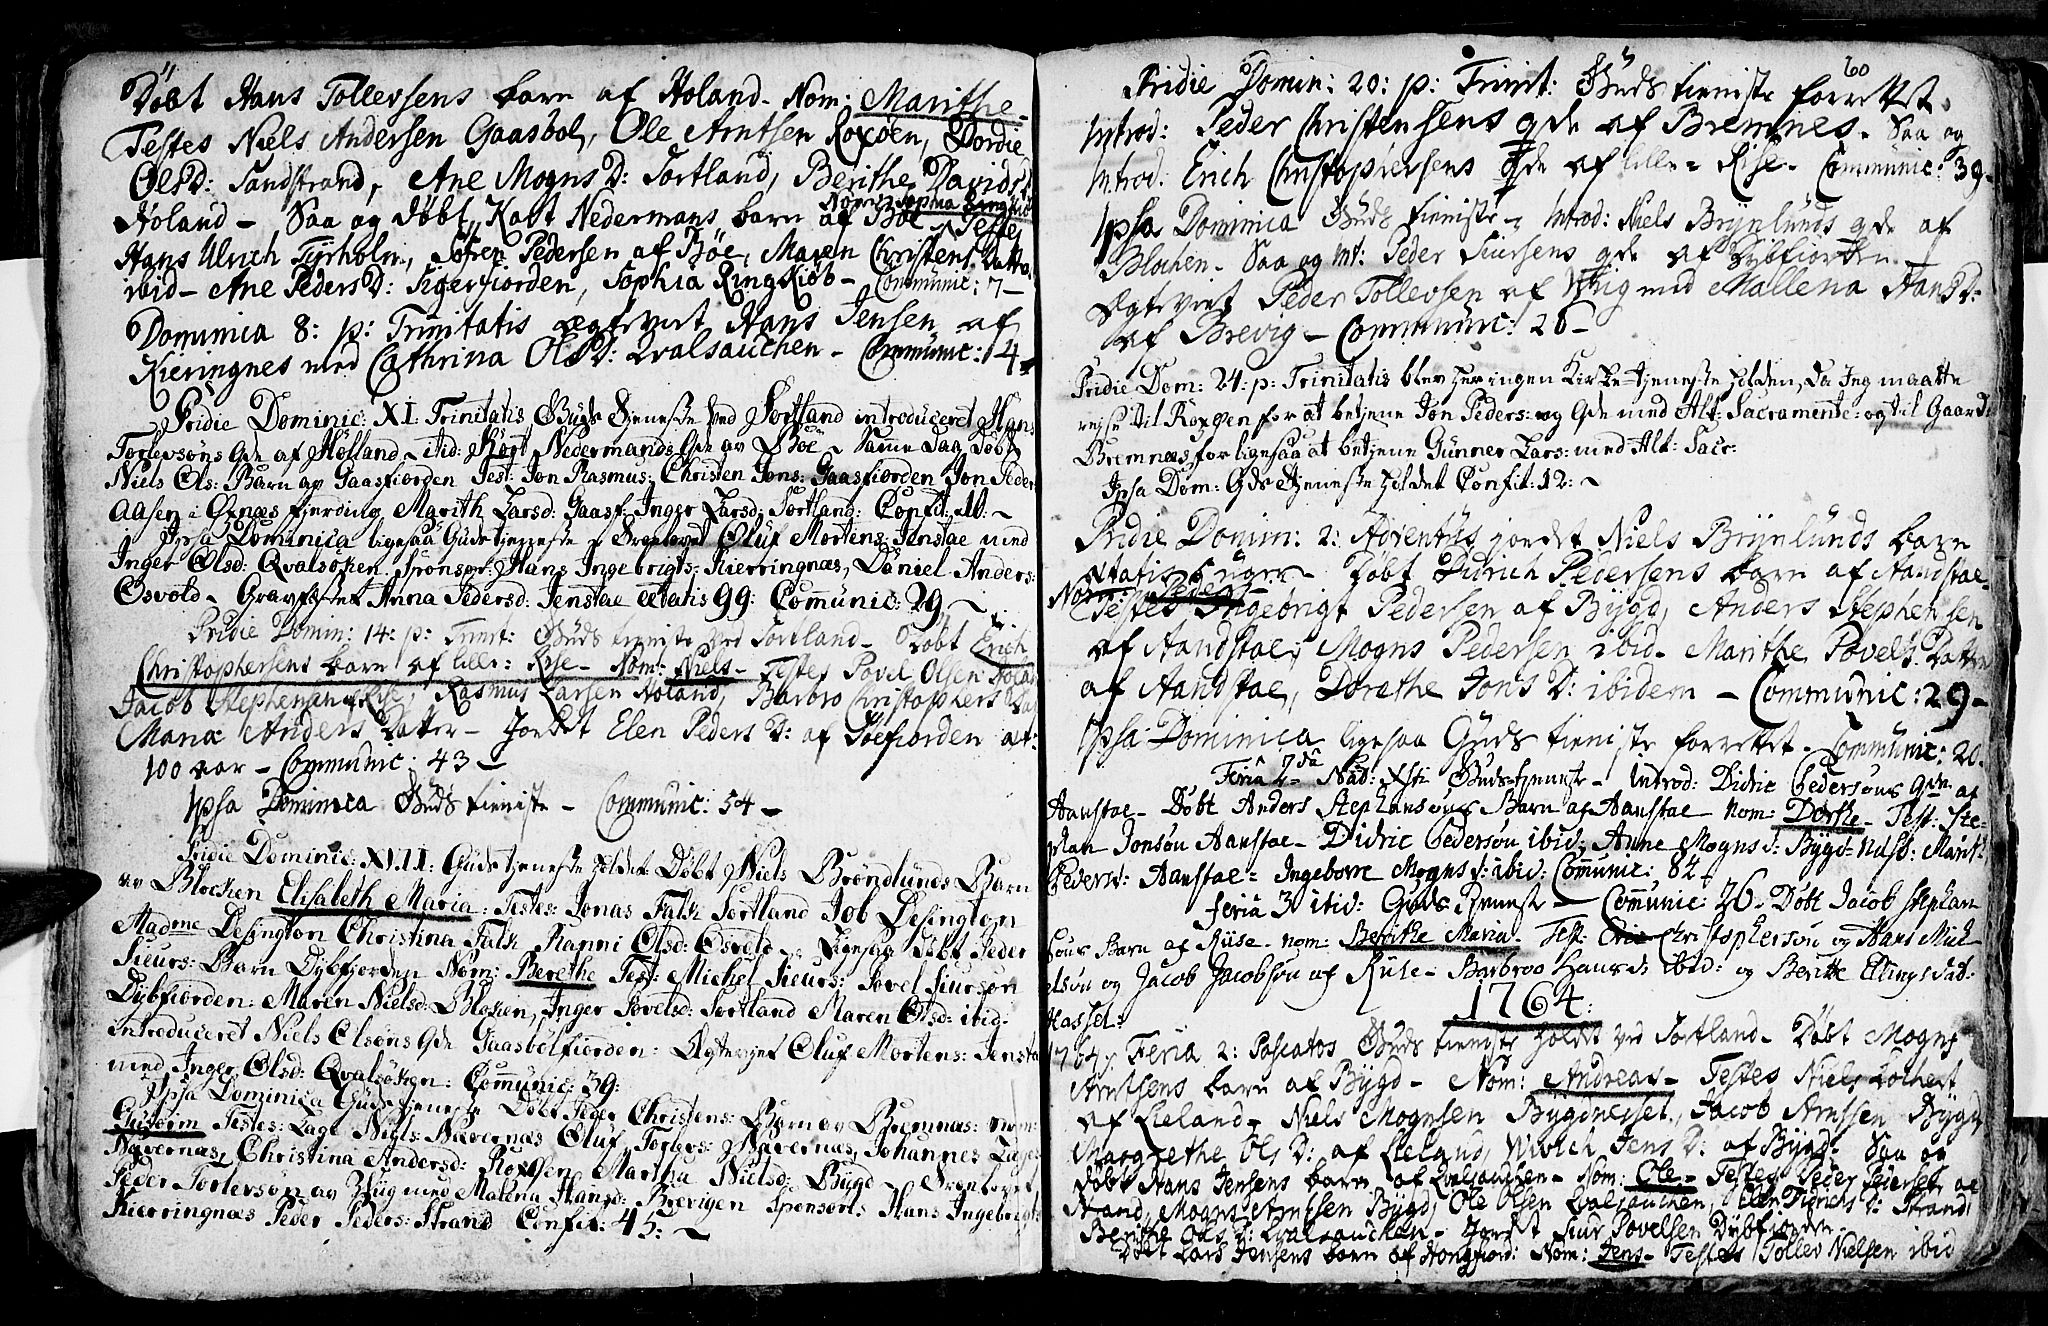 Døbt Hans Tollevsens barn af Holand - Nom: Marithe -
Testes Niels Andersen Gaasbol, Ole Arntsen Roxøen, Dordie
OlsD: Sandstrand, Ane MognsD: Sortland, Berithe Davids D:
Holand - Saa og døbt Kort Nedermans barn af Böe - Testes
Nom: Sophia Ringkiøb
Hans Ulrich Tyrholm, Søfren Pedersen af Böe, Maren Christens Datter
ibid - Ane PedersD: Sigerfiorden, Sophia Ringkiøb - Communic: 7 -
Dominica 8: p: Trinitatis ægteviet Hans Jensen af
Kieringnes med Cathrina OlsD: Qvalsauchen - Communic: 14 -
Pridie Dominic: XI: Trinitatis Guds tjeneste ved Sortland introduceret Hans
Torlevsøns Qde af Hofland - itid: Kort Nedermands Qde av Böe - Samme Dag Døbt
Niels Ols: Barn av Gaasfiorden Test: Jon Rasmus: Christen Jons: Gaasfiorden Jon Peder:
Aasen i Øxnæs fjerding Marith Larsd: Gaasf: Inger Larsd: Sortland: Confit: 10: -
Ipsa Dominica ligesaa Guds tjeneste - Troelovet Oluf Mortens: Jenstae med
Inger Olsd: Qvalsöken. Sponsor: Hans Ingebrigts: Kierringnæs, Daniel Anders:
Osvold - Gravfæstet Anna Pedersd: Jenstae ætatis 99: Communic: 29 -
Pridie Domin: 14: p: Trinit: Guds tieniste ved Sortland - Døbt Erich
Christophersens barn af lille: Rise - Nom: Niels - Testes Povel Olsen Holand
Jacob Stephensen Rise, Rasmus Larsen Holand, Barbro Christophers Dat
Maria Anders Datter - Jordet Elen Peders D: af Göefiorden æt:
100 aar - Communic: 43 -
Ipsa Dominica Guds tieniste - Communic: 54 -
Pridie Dominic: XVII: Guds tjeneste holdet Døbt Niels Brøndlunds Barn
av Blocken Elisabeth Maria: Testes: Jonas Falk Sortland Job Desington
Madme Desington Christina Falk Ranni Olsd: Osvold - Ligesaa Døbt Peder
Siurs: Barn Dybfjorden Nom: Berethe Test: Michel Siurs: Povel Siursøn
Dybfiorden: Maren Nielsd: Blocken, Inger Povelsd: Sortland Maren Olsd: ibid:
introduceret Niels Olsøns Qde Gaasbölfiorden: Ægteviet Oluf Mortens: Jensta
med Inger Olsd: Qvalsöken: Communic: 39:
Ipsa Dominica Guds tjeneste Døbt Peder Christens: Barn av Bremnæs: nom:
Gutorm Testes: Lage Niels: Navernæs Oluf Torbers: Navernæs, Johannes Lages:
Navernæs, Christina Andersd: Roxöen Martha Nielsd: Bygd - Troelovet
Peder Torlevsøn av Wiig med Malena Hansd: Brevigen Sponsorl: Hans Ingebrigts:
Kierringnæs Peder Peders: Strand Confit: 45: -
60
Pridie Domin: 20: p: Trinit: Guds tieniste forrettet.
Introd: Peder Christensens qde af Bremnes. Saa og
Introd: Erich Christophersens qde af lille - Rise - Communic: 39 -
Ipsa Dominica Guds tieniste - Introd: Niels Brynlunds qde af
Blochen - Saa og Int: Peder Siursens qde af Dybfiorden -
Ægteviet Peder Tollevsen af Wiig med Mallena HansD:
af Brevig - Communic: 26 -
Pridie Dom: 24: p: Trinitatis blev her ingen Kirke-tjeneste holden, da Jeg maatte
rejse til Roxøen for at betjene Jon Peders: og Qde med Alt: Sacramente: og til Gaard
Bremnæs for ligesaa at betjene Gunner Lars: med Alt: Sacr:
Ipsa Dom: Gds tjeneste holdet Confit: 12: -
Pridie Domin: 2: Adventûs jordet Niels Brynlunds barn
ætatis 6 uger - Døbt Didrich Pedersens barn af Aandstae -
Nom: Peder
Testes Ingebrigt Pedersen af Bygd, Anders Stephensen
af Aandstae, Mogns Pedersen ibid - Marithe Povels Datter
af Aandstae, Dorethe JonsD: ibidem - Communic: 29 -
Ipsa Dominica ligesaa Guds tieniste forrettet - Communic: 20.
Feria 2da Nad: Xsti Guds-tjeneste - Introd: Didric Pedersøns Qde af
Aanstae - Døbt Anders Stephansøns Barn af Aanstae nom: Dorthe - Test: Ste-
phan Jonsøn Aanstae - Didric Pedersøn ibid: Anne Mognsd: Bygdnesd: Marit:
Pedersd: Aanstae - Ingeborre Mognsd: ibid: Communic: 82 -
Feria 3 itid: Guds Tjeneste - Communic: 26 - Døbt Jacob Stephan
søns Barn af Riise - nom: Berithe Maria - Test: Eric Christophersøn og Hans Mich-
elsøn og Jacob Jacobsøn af Riise - Barbroe Hansd: ibid: og Beritte Ellingsdat:
Hassel:
1764:
1764: Feria 2: Pascatos Guds tieniste holdet ved Sortland - Døbt Mogns
Arntsens barn af Bygd - Nom: Andreas - Testes Niels Lochert
af Eleland - Niels Mognsen Bygdnesset, Jacob Arntsen Bygd,
Margrethe OlsD: af Eleland, Wivich JensD: af Bygd: Saa og
døbt Hans Jensens barn af Qvalsauchen - Nom: Ole - Testes Peder Pedersen af
Strand, Mogns Arntsen Bygd, Ole Olsen Qvalsauchen, Elen DidrichsD: Strand,
Berithe OlsD: Qvalsauchen - Jordet Siur Povelsen Dybfiorden -
Døbt Lars Jensens barn af Hongfiord: Nom: Jens - Testes Tollev Nielsen ibid